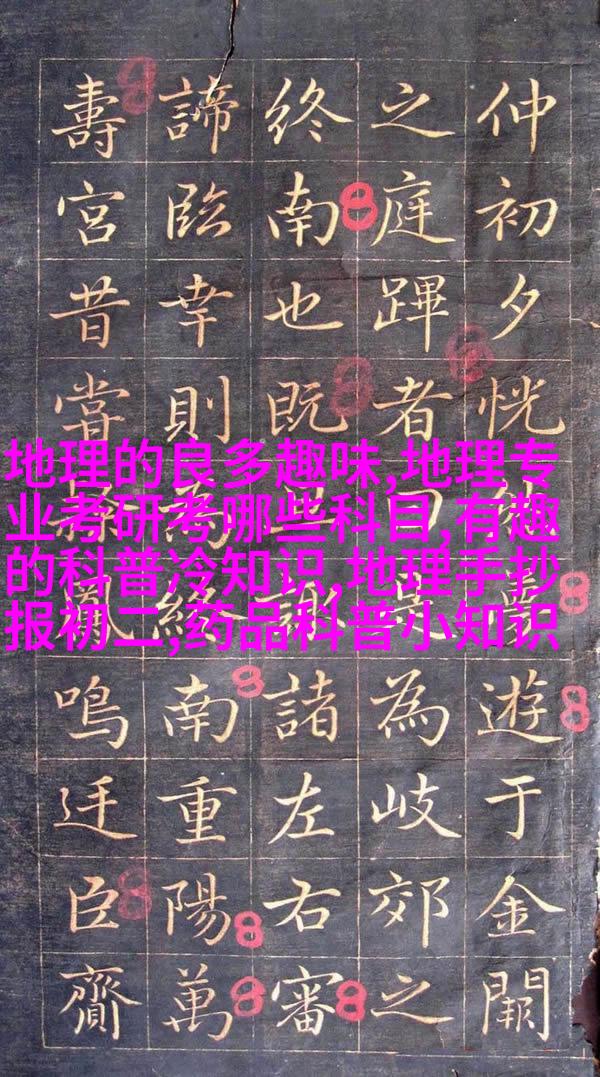 地理的良多趣味,地理专
业考研考哪些科目,有趣
的科普冷知识,地理手抄
报初二,药品科普小知识
仲初夕恍遊于金闕
之庭蹕者曰為岐郊之
終南也既諸左右審
諦臨幸則為終南重陽萬
壽宮昔嘗鳴臣齎